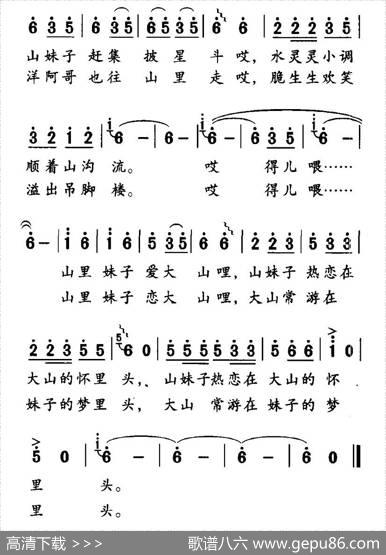 6 3 5 | 6 3 5 | 6 5 3 5 | 6 6 | 2 2 2 3 5 |
山妹子赶集 披星斗哎，水灵灵小调
洋阿哥也往 山里走哎，脆生生欢笑
3 2 1 2 | 6 - | 6 - | 6 6 3 5 | 6 - | 6 - |
顺着山沟流。 哎 得儿喂……
溢出吊脚楼。 哎 得儿喂……
6 - | i 6 | i 6 | 5 3 5 | 6 6 | 2 2 3 | 5 3 3 |
山里妹子爱大山哩，山妹子热恋在
山里妹子恋大山哩，大山常游在
2 2 3 5 5 | 6 0 | 5 5 5 5 3 3 | 5 6 6 | i 0 |
大山的怀里头，、山妹子热恋在大山的怀
妹子的梦里头，大山 常游在妹子的梦
5 0 | 6 - | 6 - | 6 - | 6 - ‖
里头。
里头。
高清下载 >>>
歌谱八六 www.gepu86.com